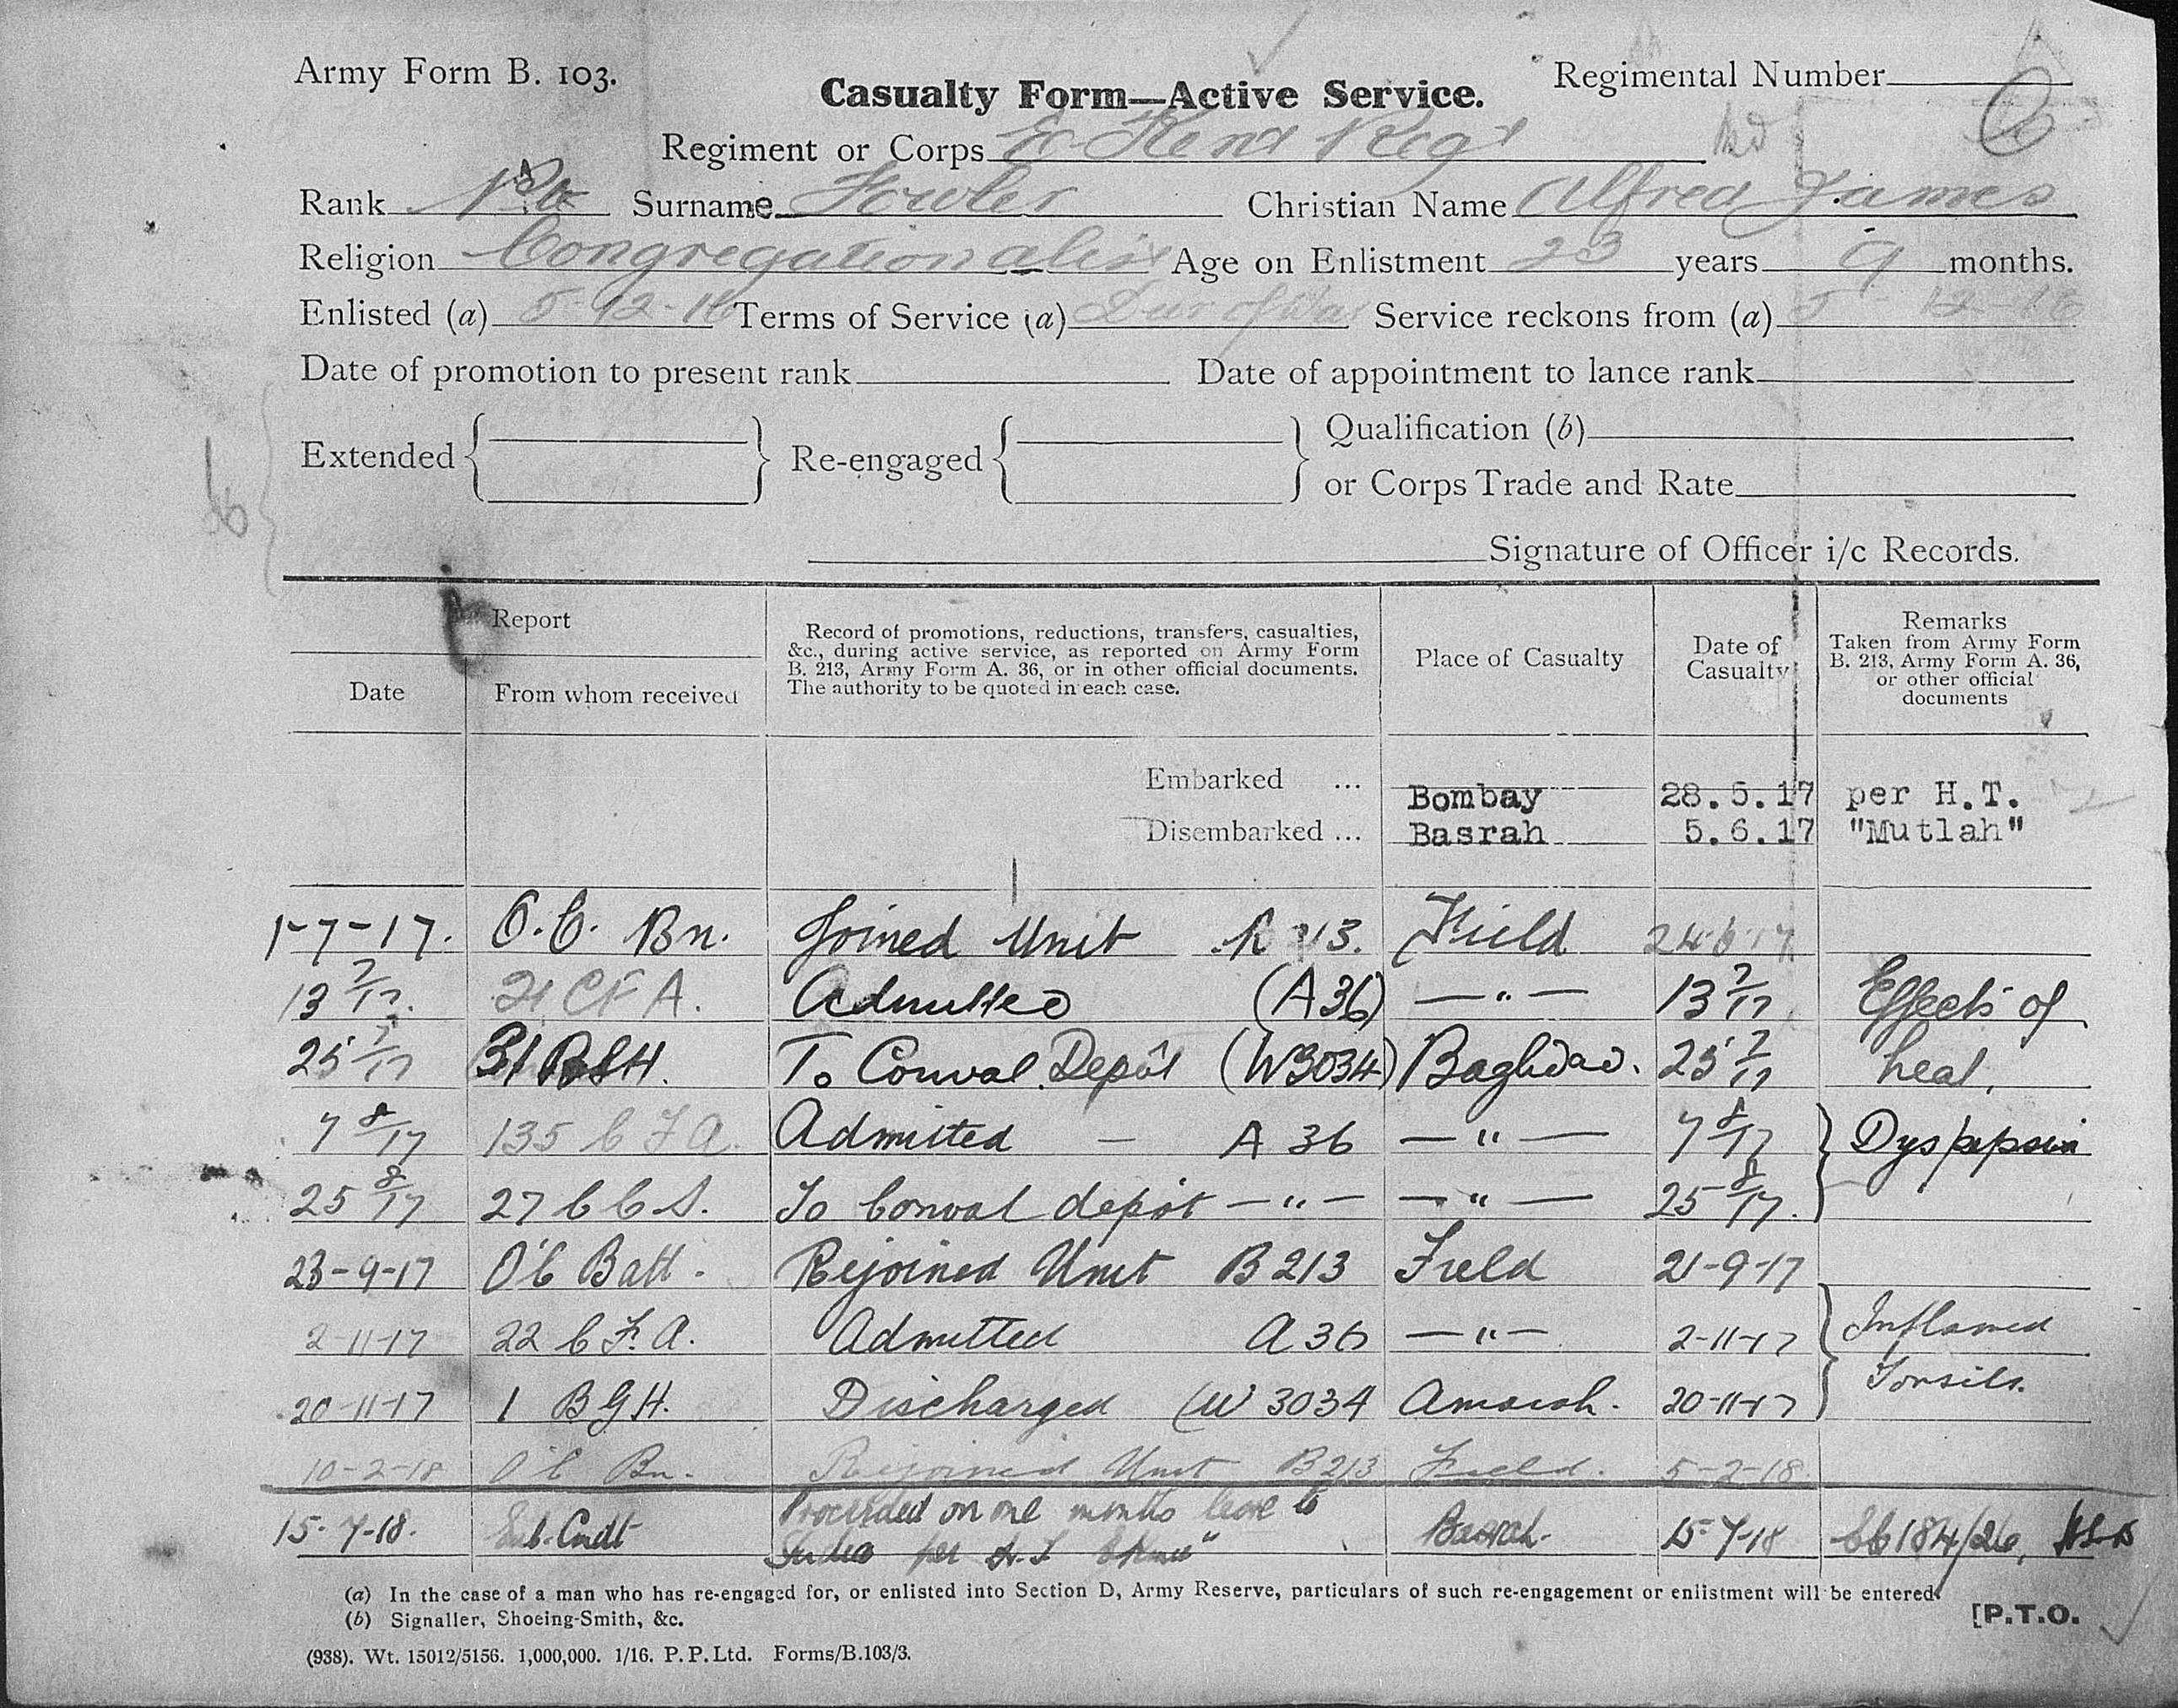 Army Form B. 103.
Casualty Form—Active Service.
Regimental Number
Regiment or Corps E. Kent Regt
Rank Pte Surname Fowler Christian Name Alfred James
Religion Congregationalist Age on Enlistment 23 years 9 months.
Enlisted (a) 5-12-16 Terms of Service (a) Dur of War Service reckons from (a) 5-12-16
Date of promotion to present rank Date of appointment to lance rank
Extended Re-engaged Qualification (b)
or Corps Trade and Rate
Signature of Officer i/c Records.
Report
Date From whom received
Record of promotions, reductions, transfers, casualties,
&c., during active service, as reported on Army Form
B. 213, Army Form A. 36, or in other official documents.
The authority to be quoted in each case.
Place of Casualty
Date of
Casualty
Remarks
Taken from Army Form
B. 213, Army Form A. 36,
or other official
documents
Embarked ... Bombay 28.5.17 per H.T.
Disembarked ... Basrah 5.6.17 "Mutlah"
1-7-17. O.C. Bn. Joined Unit 213. Field 24-6-17
13 7/17. 21 CF A. Admitted (A36) — " — 13 7/17 Effects of
25 7/17 31 To Conval. Depôt (W3034) Baghdad. 25 7/17 heat.
7 8/17 135 C F A. Admitted — A 36 — " — 7 8/17 Dyspepsia
25 8/17 27 C C S. To Conval depôt — " — — " — 25 8/17.
23-9-17 O'C Batt. Rejoined Unit B 213 Field 21-9-17
2-11-17 22 C F. A. Admitted A 36 — " — 2-11-17 Inflamed
20-11-17 1 BGH. Discharged (W 3034 Amarah. 20-11-17 Tonsils.
10-2-18 O'C Bn. Rejoined Unit B 213 Field. 5-2-18
15-7-18. Cmdt Proceeded on one months leave to Basrah. 15-7-18 184/26,
India per H.T.
(a) In the case of a man who has re-engaged for, or enlisted into Section D, Army Reserve, particulars of such re-engagement or enlistment will be entered.
(b) Signaller, Shoeing-Smith, &c.
[P.T.O.
(938). Wt. 15012/5156. 1,000,000. 1/16. P.P.Ltd. Forms/B.103/3.